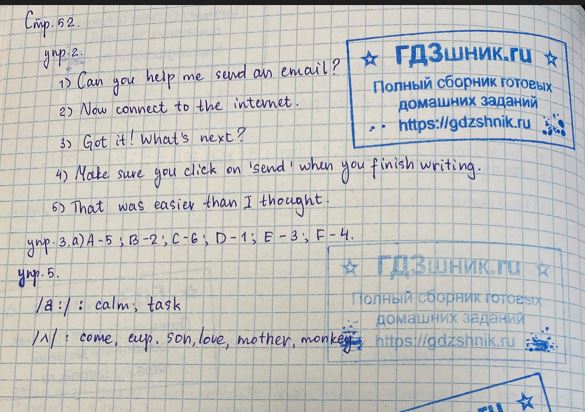 Стр. 52.
упр. 2.
1) Can you help me send an email?
2) Now connect to the internet.
3) Got it! What's next?
4) Make sure you click on 'send' when you finish writing.
5) That was easier than I thought.
упр. 3. а) A-5; B-2; C-6; D-1; E-3; F-4.
упр. 5.
/a:/ : calm; task
/ʌ/ : come, cup, son, love, mother, monkey
ГДЗшник.ru
Полный сборник готовых
домашних заданий
https://gdzshnik.ru
ГДЗшник.ru
Полный сборник готовых
домашних заданий
https://gdzshnik.ru